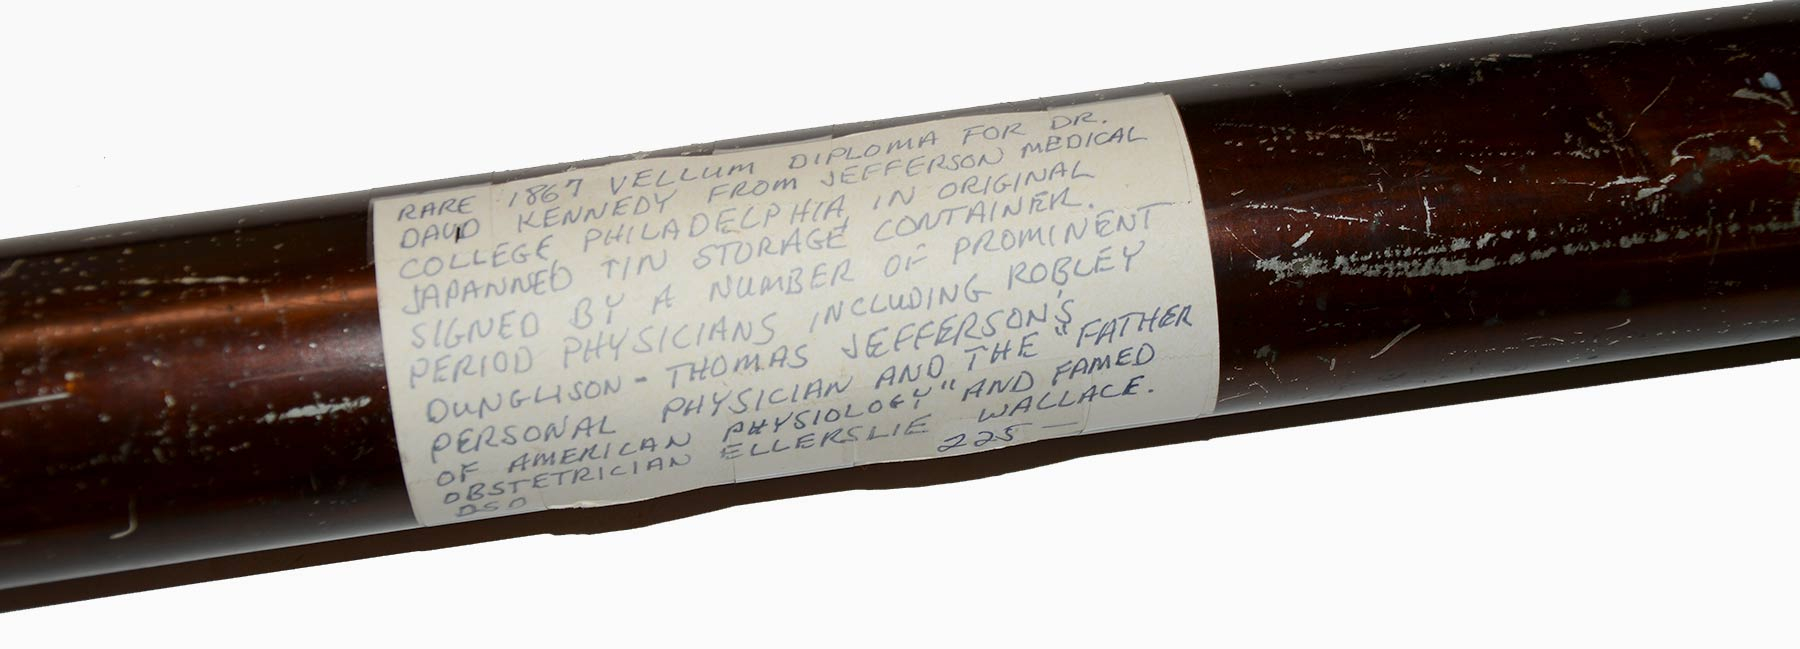 RARE 1867 VELLUM DIPLOMA FOR DR.
DAVID KENNEDY FROM JEFFERSON MEDICAL
COLLEGE PHILADELPHIA, IN ORIGINAL
JAPANNED TIN STORAGE CONTAINER.
SIGNED BY A NUMBER OF PROMINENT
PERIOD PHYSICIANS INCLUDING ROBLEY
DUNGLISON - THOMAS JEFFERSON'S
PERSONAL PHYSICIAN AND THE "FATHER
OF AMERICAN PHYSIOLOGY" AND FAMED
OBSTETRICIAN ELLERSLIE WALLACE.
DSO 225 —